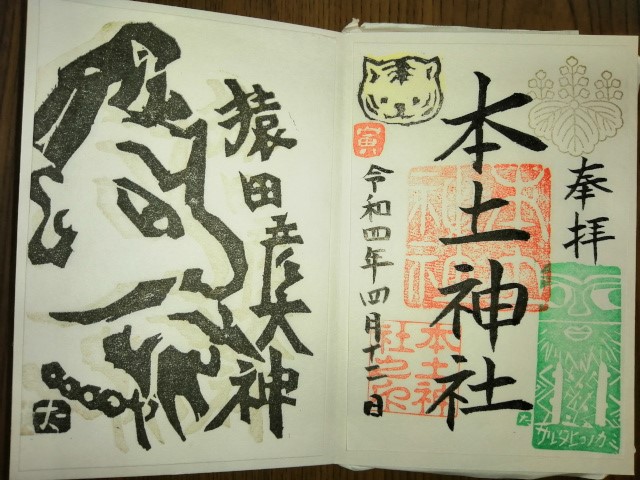 奉拝
本土神社
令和四年四月十二日
寅
本土神
社之印
サルタヒコノカミ
猿田彦大神